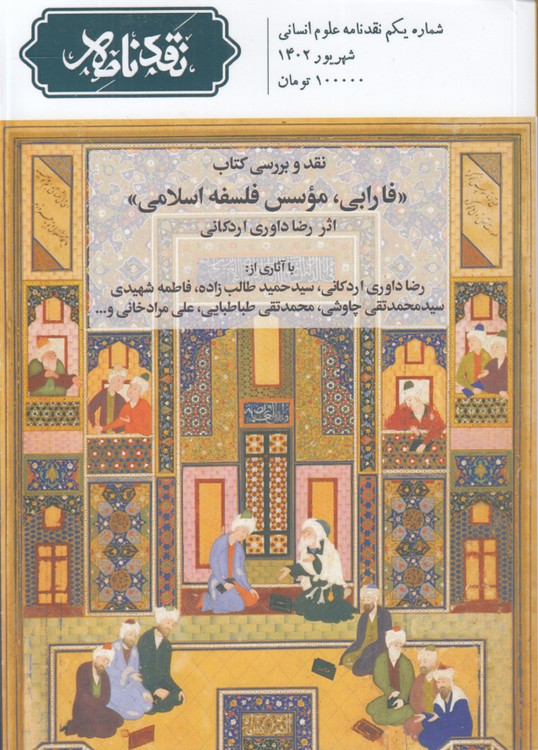 شماره یکم نقدنامه علوم انسانی
شهریور ۱۴۰۲
۱۰۰۰۰۰ تومان
نقدنامه
نقد و بررسی کتاب
«فارابی، مؤسس فلسفه اسلامی»
اثر رضا داوری اردکانی
با آثاری از:
رضا داوری اردکانی، سیدحمید طالب زاده، فاطمه شهیدی
سیدمحمدتقی چاوشی، محمدتقی طباطبایی، علی مرادخانی و...